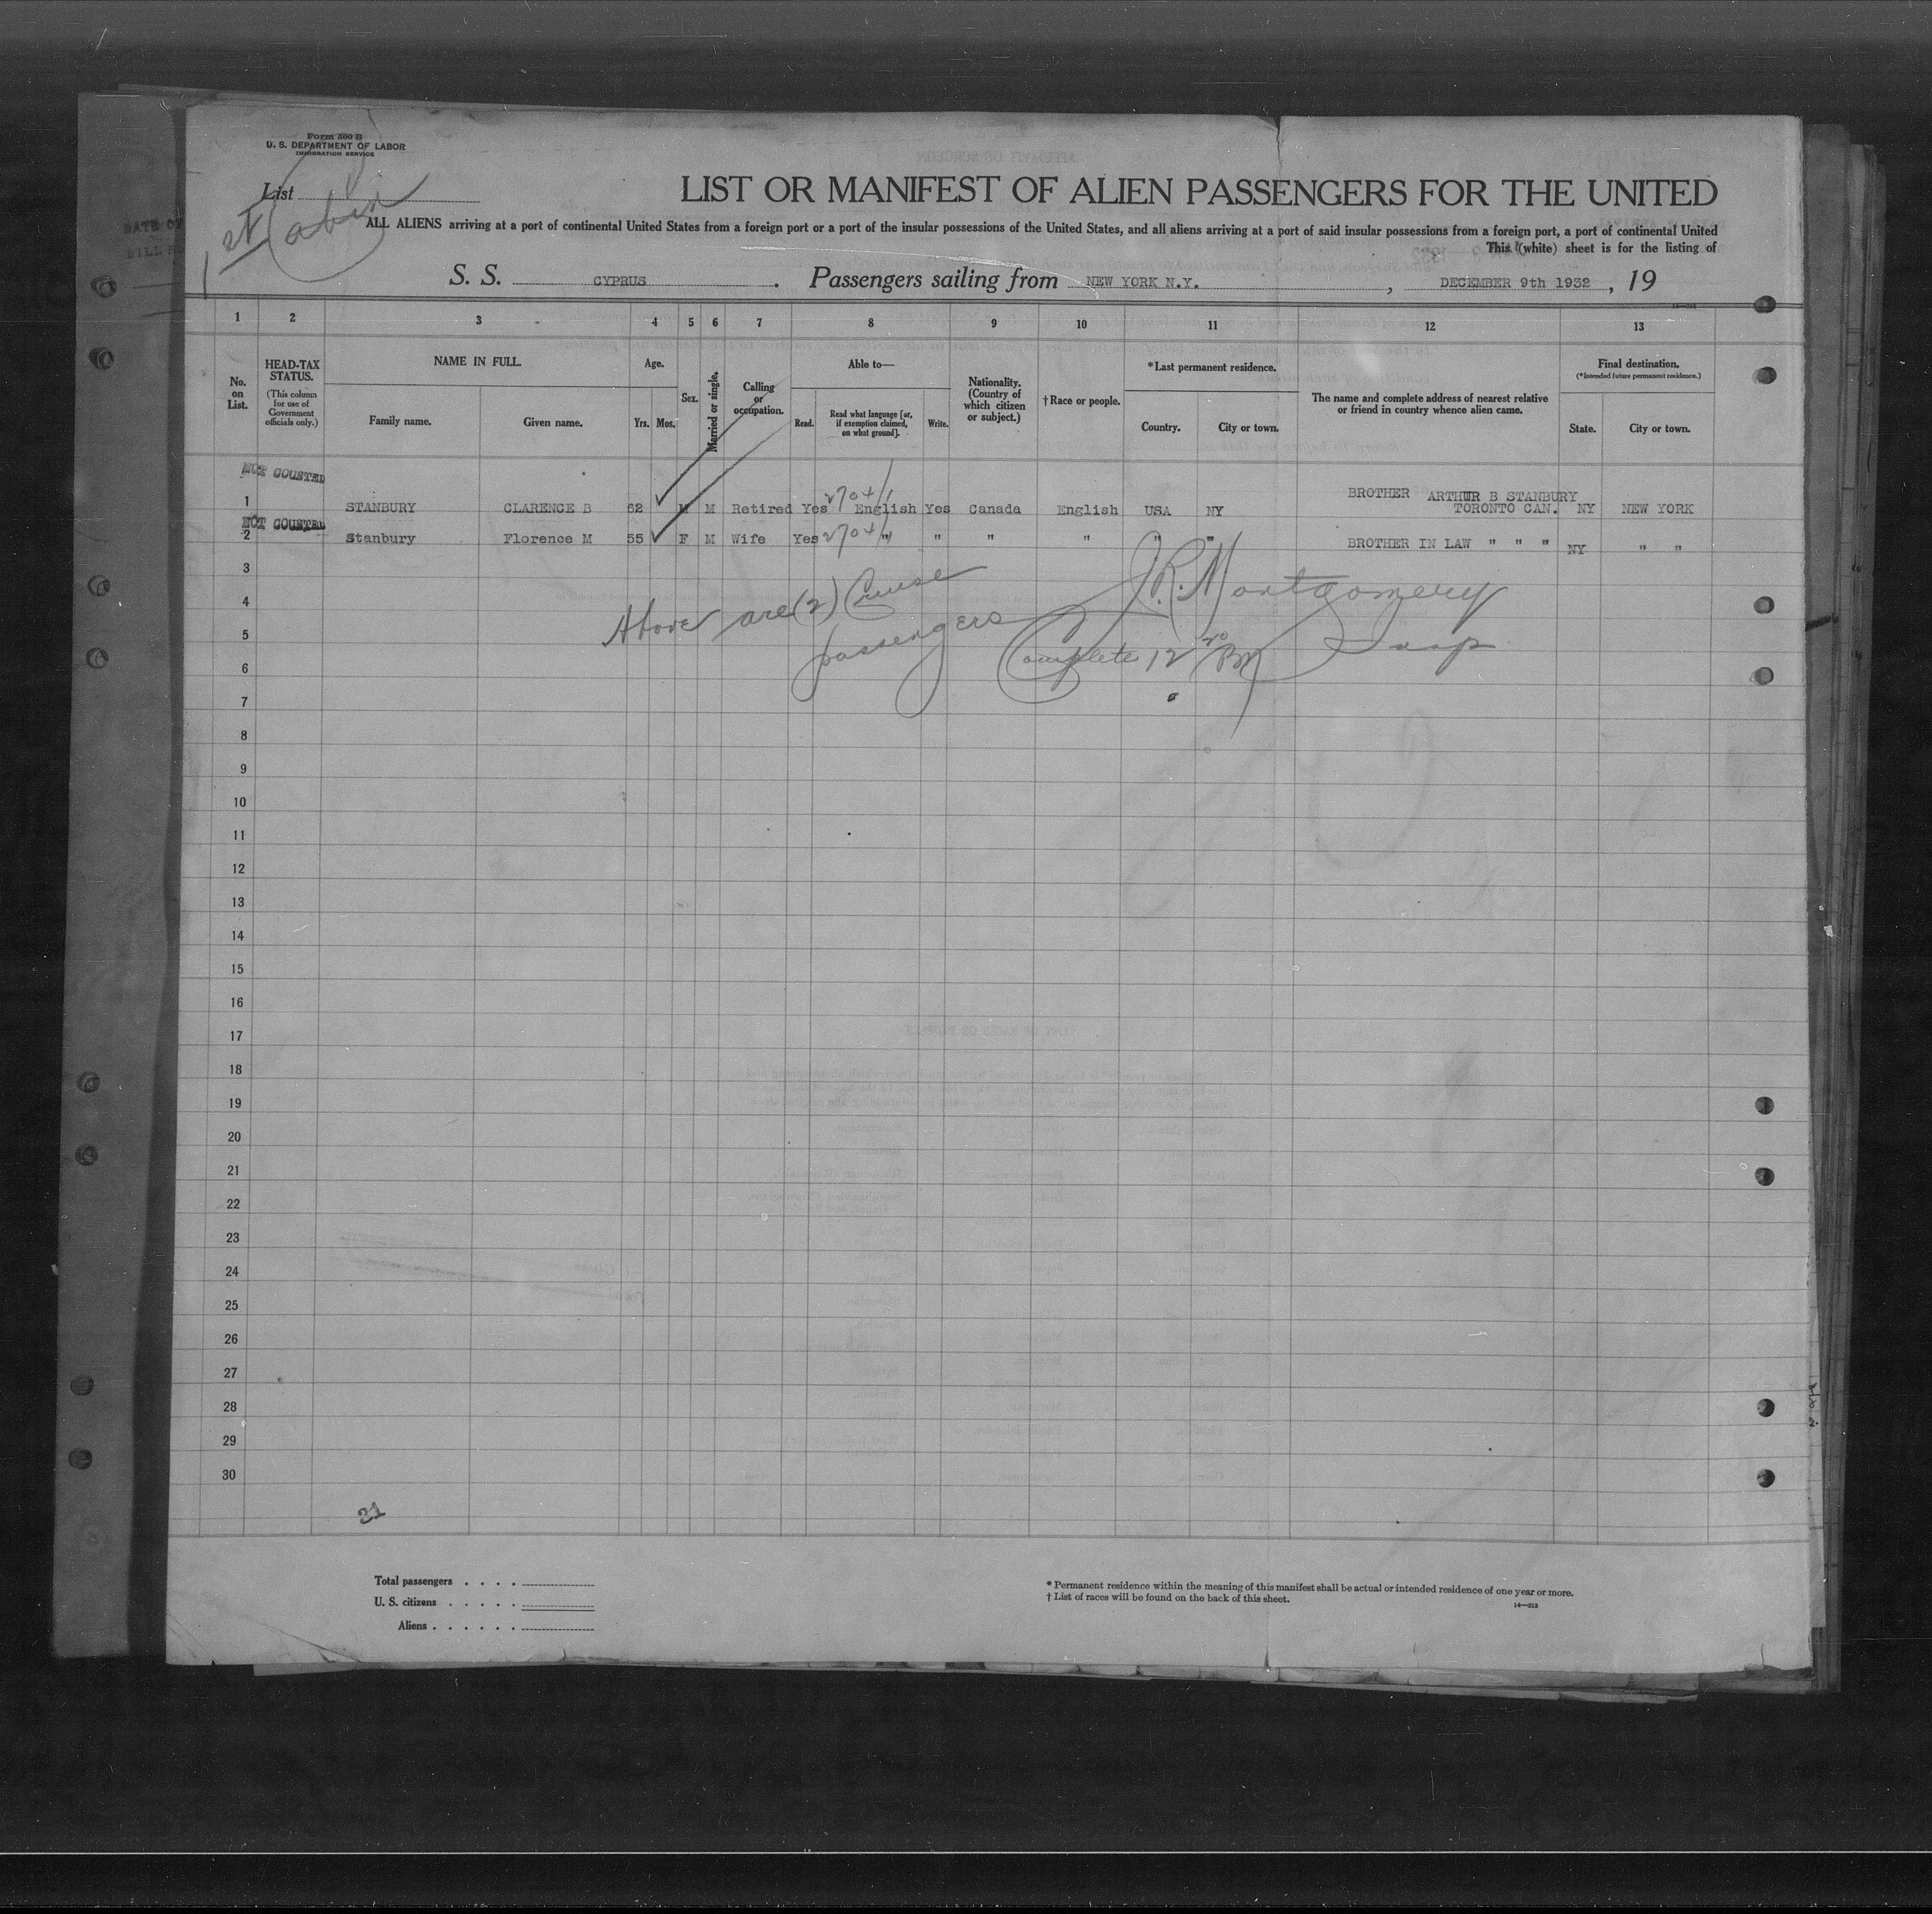 Form 500 B
U. S. DEPARTMENT OF LABOR
IMMIGRATION SERVICE
List
1st Cabin
LIST OR MANIFEST OF ALIEN PASSENGERS FOR THE UNITED
ALL ALIENS arriving at a port of continental United States from a foreign port or a port of the insular possessions of the United States, and all aliens arriving at a port of said insular possessions from a foreign port, a port of continental United
This (white) sheet is for the listing of
S. S. CYPRUS . Passengers sailing from NEW YORK N.Y. , DECEMBER 9th 1932 , 19
1 2 3 4 5 6 7 8 9 10 11 12 13
No. on List.
HEAD-TAX STATUS.
(This column for use of Government officials only.)
NAME IN FULL.
Family name. Given name.
Age.
Yrs. Mos.
Sex.
Married or single.
Calling or occupation.
Able to—
Read. Read what language [or, if exemption claimed, on what ground]. Write.
Nationality. (Country of which citizen or subject.)
† Race or people.
* Last permanent residence.
Country. City or town.
The name and complete address of nearest relative or friend in country whence alien came.
Final destination.
(* Intended future permanent residence.)
State. City or town.
NOT COUNTED
1 STANBURY CLARENCE B 62 M M Retired Yes 2704/1 English Yes Canada English USA NY BROTHER ARTHUR B STANBURY TORONTO CAN. NY NEW YORK
NOT COUNTED
2 Stanbury Florence M 55 F M Wife Yes 2704/1 " " " " " " BROTHER IN LAW " " " NY " "
3
Above are (2) Cruise
passengers
J.R. Montgomery
Insp
Complete 12 20 PM
4
5
6
7
8
9
10
11
12
13
14
15
16
17
18
19
20
21
22
23
24
25
26
27
28
29
30
21
Total passengers . . . .
U. S. citizens . . . . .
Aliens . . . . . .
* Permanent residence within the meaning of this manifest shall be actual or intended residence of one year or more.
† List of races will be found on the back of this sheet.
14—213